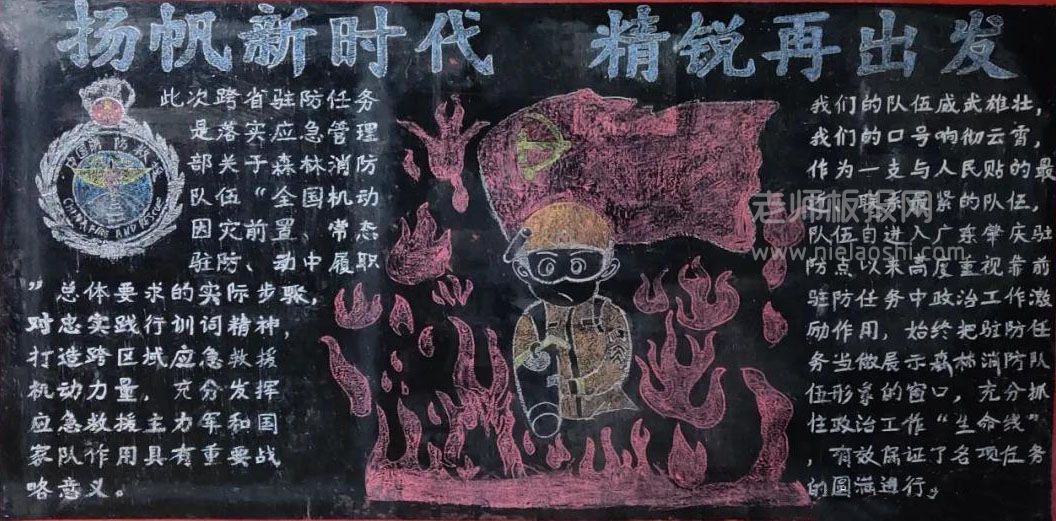 扬帆新时代 精锐再出发
中国消防救援
CHINA FIRE AND RESCUE
此次跨省驻防任务
是落实应急管理
部关于森林消防
队伍“全国机动
因灾前置、常态
驻防、动中履职
”总体要求的实际步骤，
对忠实践行训词精神，
打造跨区域应急救援
机动力量，充分发挥
应急救援主力军和国
家队作用具有重要战
略意义。
我们的队伍威武雄壮，
我们的口号响彻云霄，
作为一支与人民贴的最
联系 紧的队伍，
队伍自进入广东肇庆驻
防点以来高度重视靠前
驻防任务中政治工作激
励作用，始终把驻防任
务当做展示森林消防队
伍形象的窗口，充分抓
住政治工作“生命线”
，有效保证了各项任务
的圆满进行。
老师板报网
www.nielaoshi.com